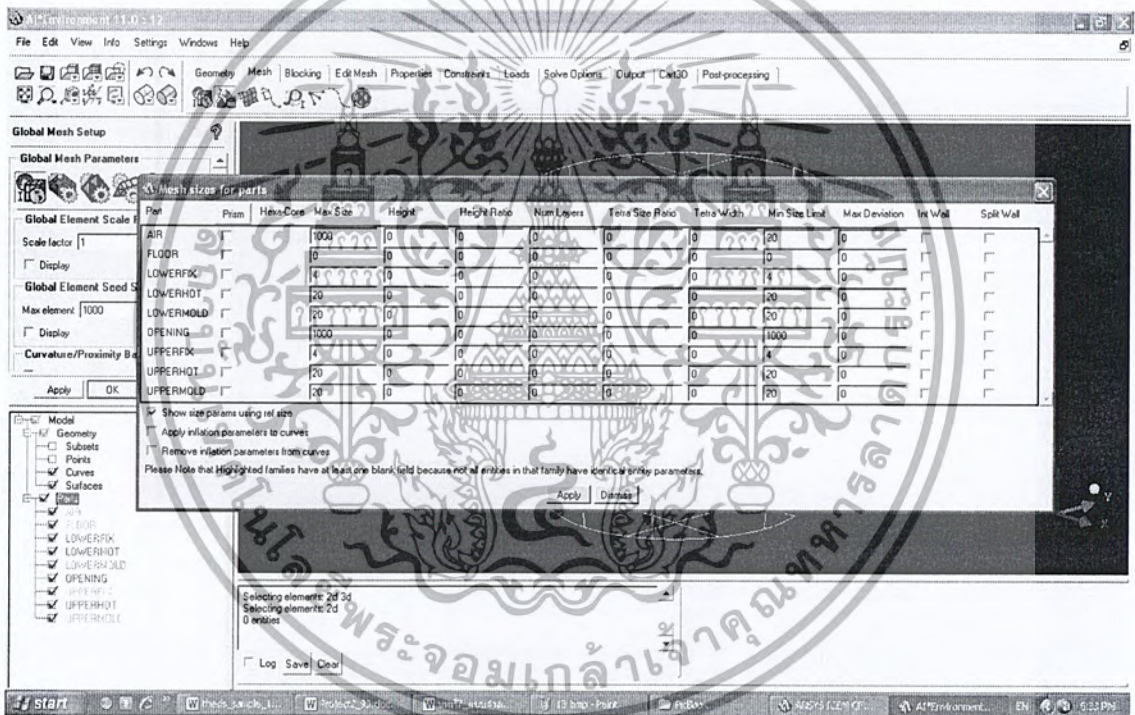 AI*Environment 11.0 : 12
File Edit View Info Settings Windows Help
Geometry Mesh Blocking Edit Mesh Properties Constraints Loads Solve Options Output Cart3D Post-processing
Global Mesh Setup
Global Mesh Parameters
Global Element Scale F
Scale factor 1
Display
Global Element Seed S
Max element 1000
Display
Curvature/Proximity Ba
Apply OK
Mesh sizes for parts
Part Prism Hexa-Core Max Size Height Height Ratio Num Layers Tetra Size Ratio Tetra Width Min Size Limit Max Deviation Int Wall Split Wall
AIR 1000 0 0 0 0 0 20 0
FLOOR 0 0 0 0 0 0 0 0
LOWERFIX 4 0 0 0 0 0 4 0
LOWERHOT 20 0 0 0 0 0 20 0
LOWERMOLD 20 0 0 0 0 0 20 0
OPENING 1000 0 0 0 0 0 1000 0
UPPERFIX 4 0 0 0 0 0 4 0
UPPERHOT 20 0 0 0 0 0 20 0
UPPERMOLD 20 0 0 0 0 0 20 0
Show size params using ref size
Apply inflation parameters to curves
Remove inflation parameters from curves
Please Note that Highlighted families have at least one blank field because not all entities in that family have identical entity parameters.
Apply Dismiss
Model
Geometry
Subsets
Points
Curves
Surfaces
Parts
AIR
FLOOR
LOWERFIX
LOWERHOT
LOWERMOLD
OPENING
UPPERFIX
UPPERHOT
UPPERMOLD
Selecting elements: 2d 3d
Selecting elements: 2d
0 entities
Log Save Clear
Y
X
สถาบันเทคโนโลยีพระจอมเกล้าเจ้าคุณทหารลาดกระบัง
start 13.bmp - Paint PicBox AI*Environment... EN 6:33 PM